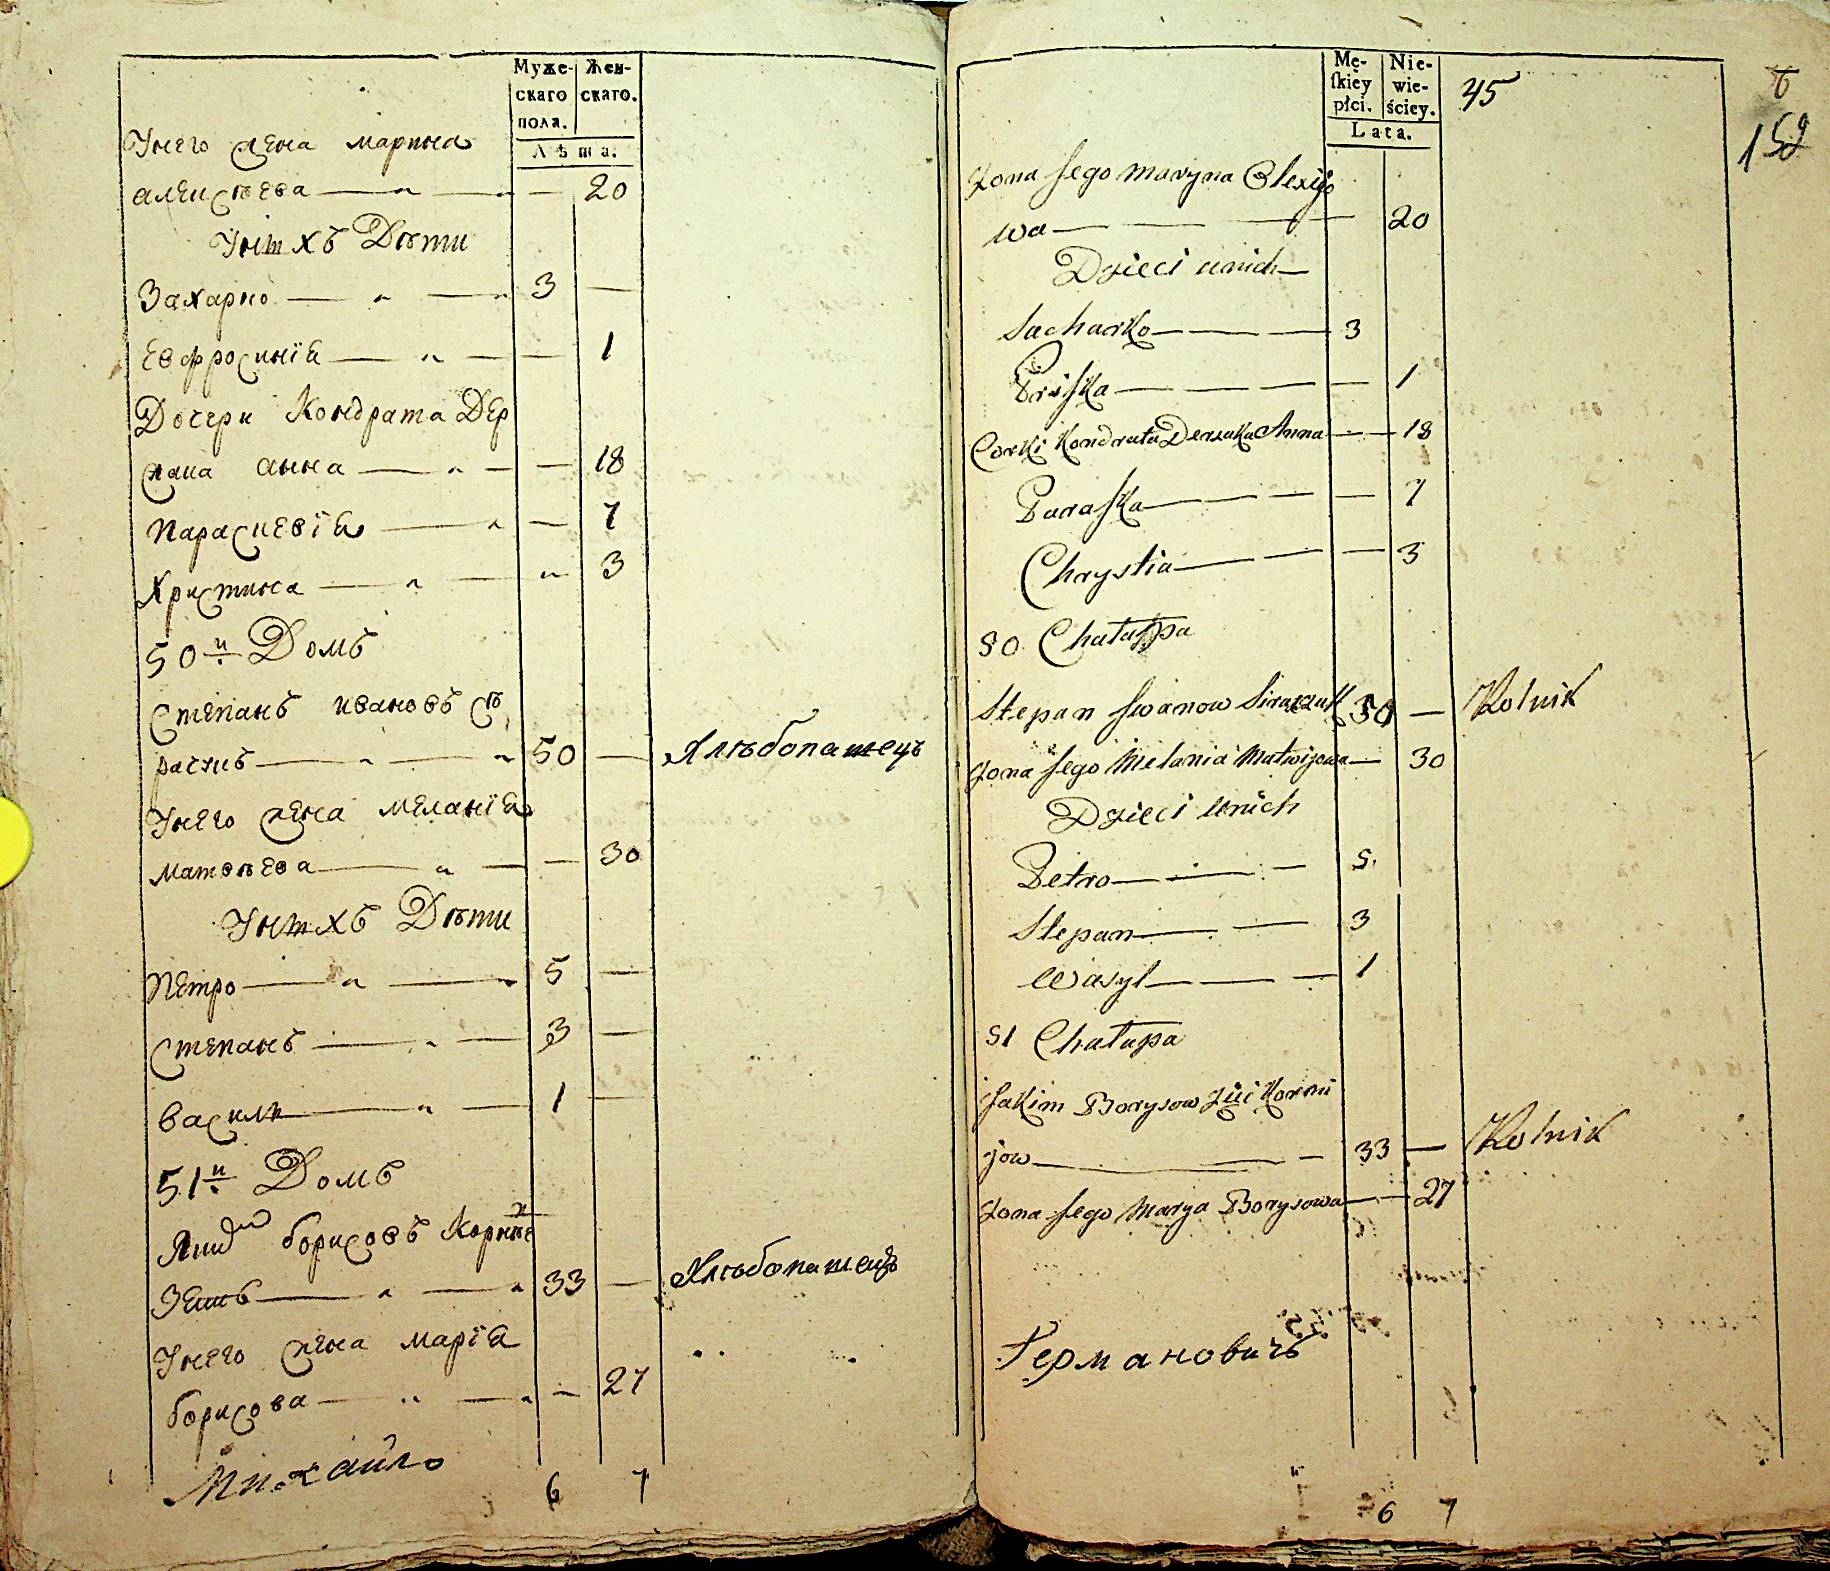 Муже-
скаго
пола.
Жен-
скаго.
Лѣта.
Унего жена марина
алексѣева — " — " — 20
Унихъ Дѣти
Захарко — " — " 3 —
Евфросиніа — " — — 1
Дочери Кондрата Дер
жака анна — " — — 18
параскевіа — " — 7
Христина — " — " 3
50й Домъ
Степанъ ивановъ Сѣ
рачукъ — " — " 50 — Хлѣбопашецъ
Унего жена меланіа
матвѣева — " — — 30
Унихъ Дѣти
петро — " — " 5 —
Степанъ — " — 3 —
василь — " — 1 —
51й Домъ
Яким борисовъ Корнѣй
— " — " 33 — Хлѣбопашецъ
Унего жена маріа
борисова — " — " — 27
Михайло
6 7
Mę-
ſkiey
płci.
Nie-
wie-
ściey.
Lata.
45
152
Zona Jego Maryna Olexijo
wa — — — 20
Dzieci unich
Sacharko — — — 3
Priska — — — — 1
Corki Kondrata Derzaka Anna — — 18
Paraska — — — — 7
Chrystia — — — 3
50 Chałuppa
Stepan Iwanow Siraczuk 50 — Rolnik
Zona Jego Melania Matwijowa — 30
Dzieci unich
Petro — — — 5.
Stepan — — 3
Wasyl — — — 1
51 Chałupa
Jakim Borysow Korni
jow — — 33 — Rolnik
Zona Jego Marya Borysowa — — 27
Германовичъ
6 7